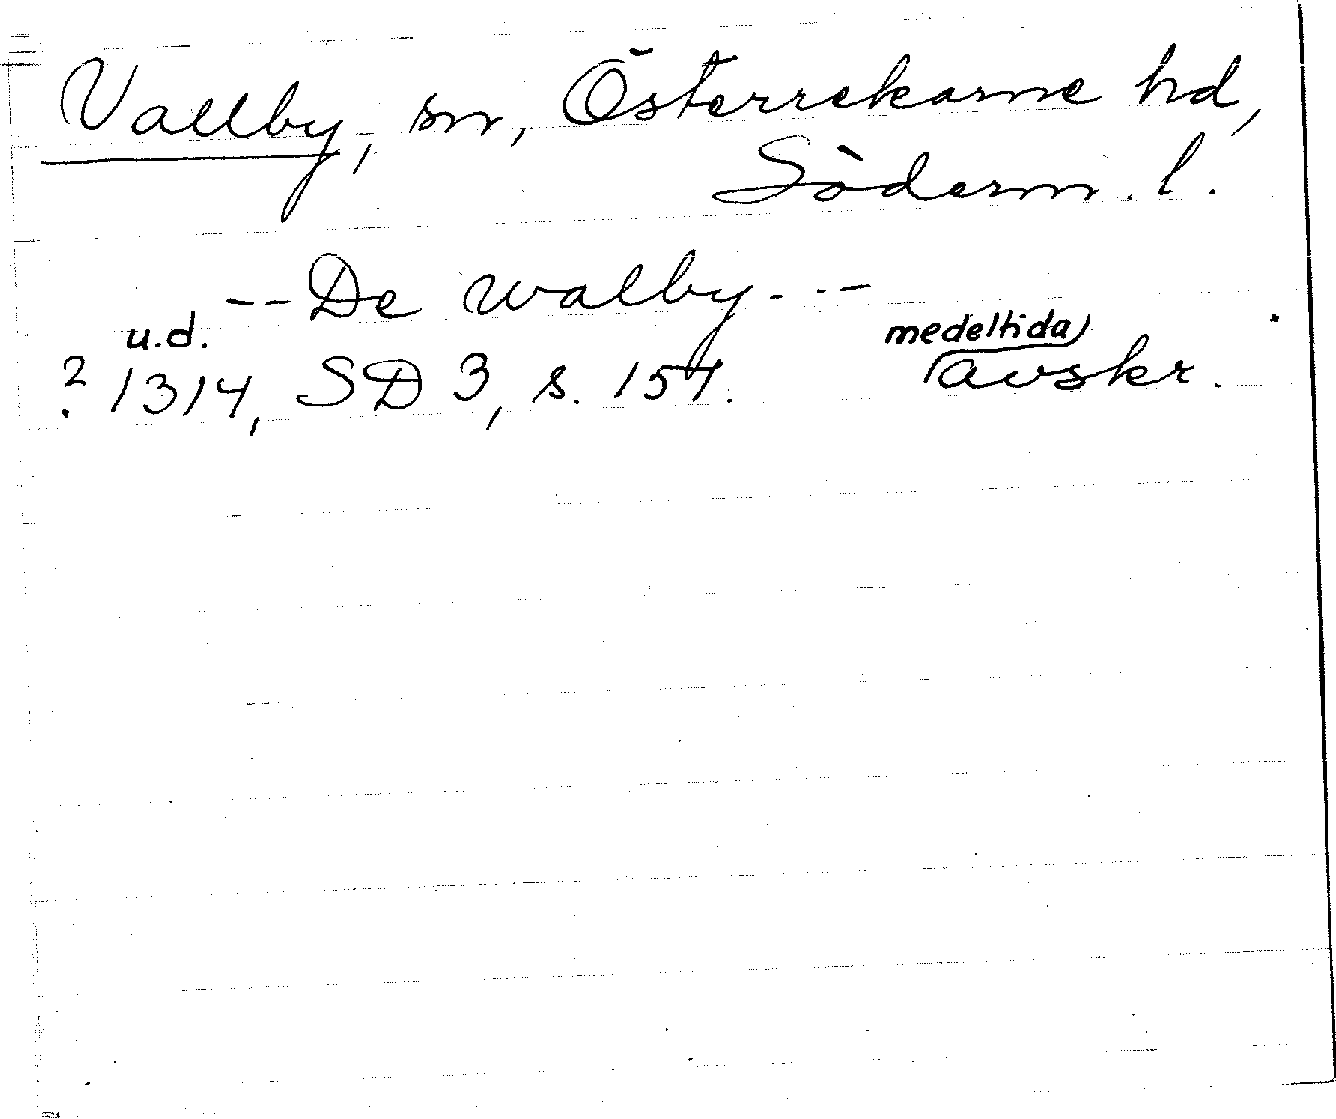 Vallby, sn, Österrekarne hd,
Söderm. l.
-- De walby ---
u.d. medeltida
? 1314, SD 3, s. 154. avskr.